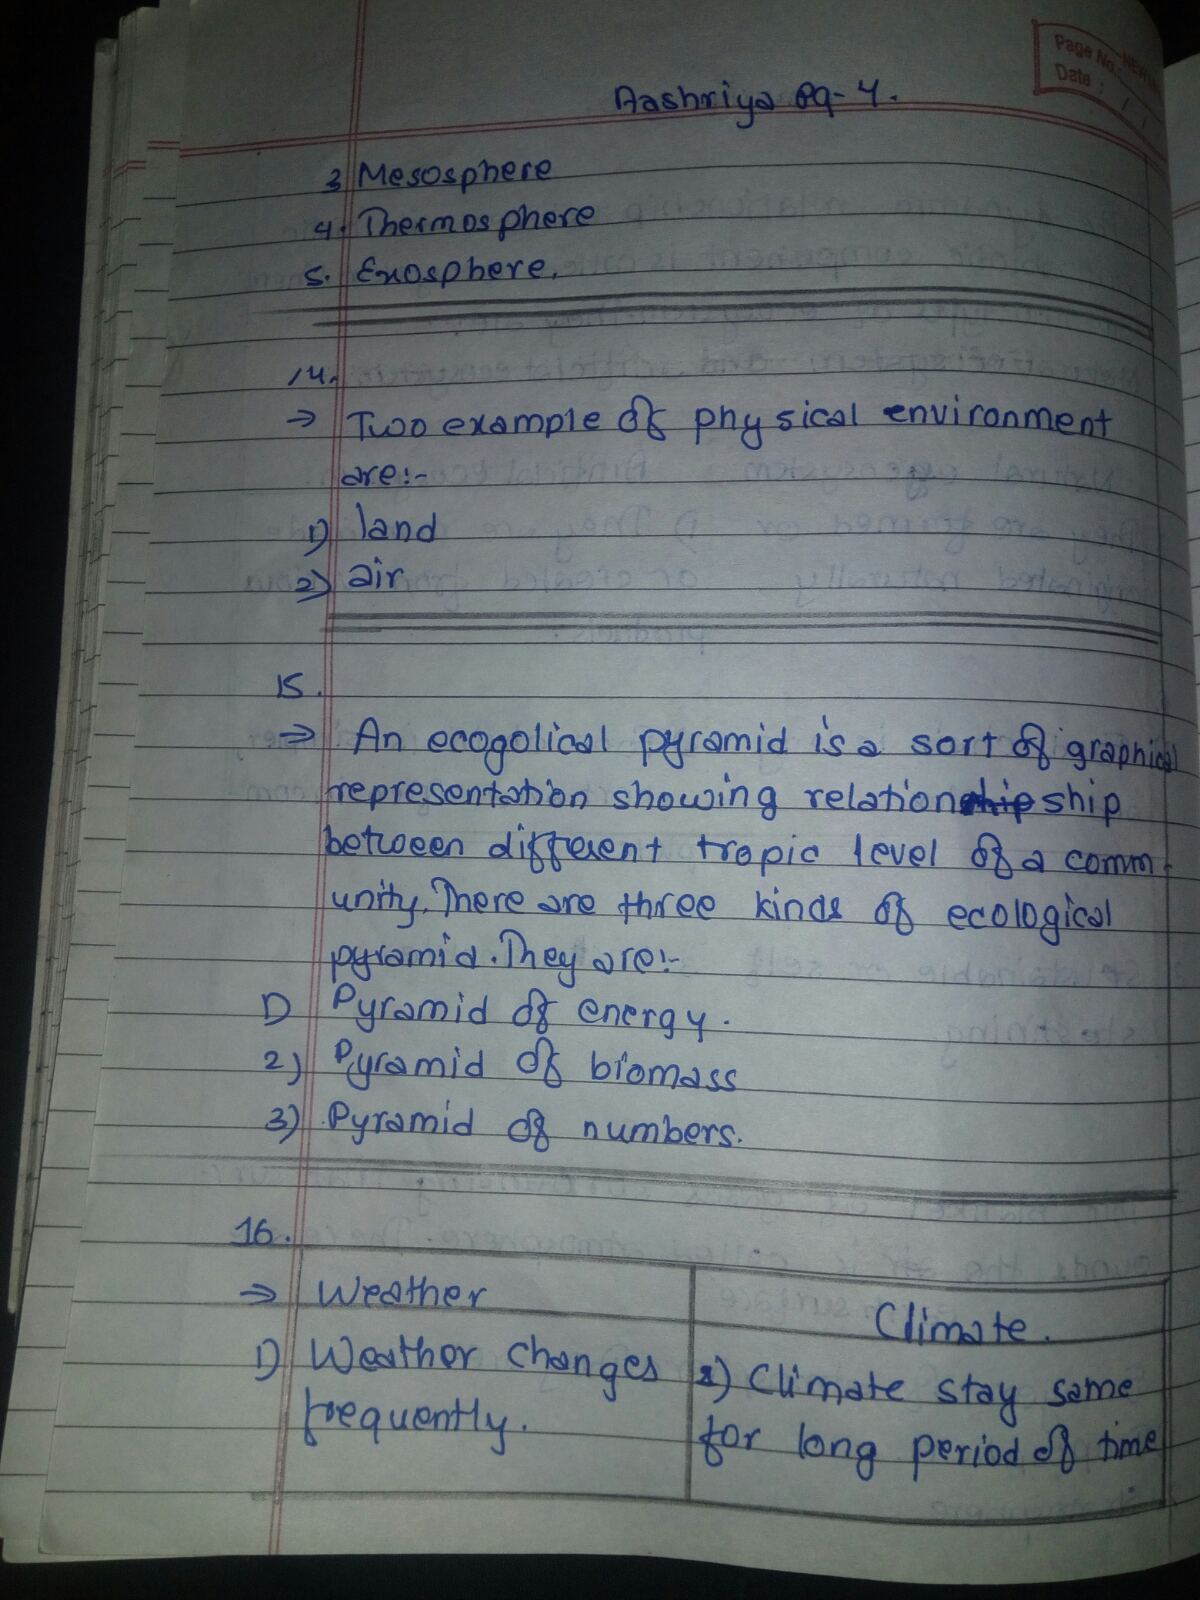 Page No.:
Date : / /
Aashriya pg-4.
3 Mesosphere
4. Thermosphere
5. Exosphere.
14.
→ Two example of physical environment
are:-
1) land
2) air
15.
→ An ecogolical pyramid is a sort of graphical
representation showing relationship ship
between different tropic level of a comm-
unity. There are three kinds of ecological
pyramid. They are:-
1) Pyramid of energy.
2) Pyramid of biomass
3) Pyramid of numbers.
16.
→ Weather
Climate.
1) Weather changes
frequently.
1) Climate stay same
for long period of time